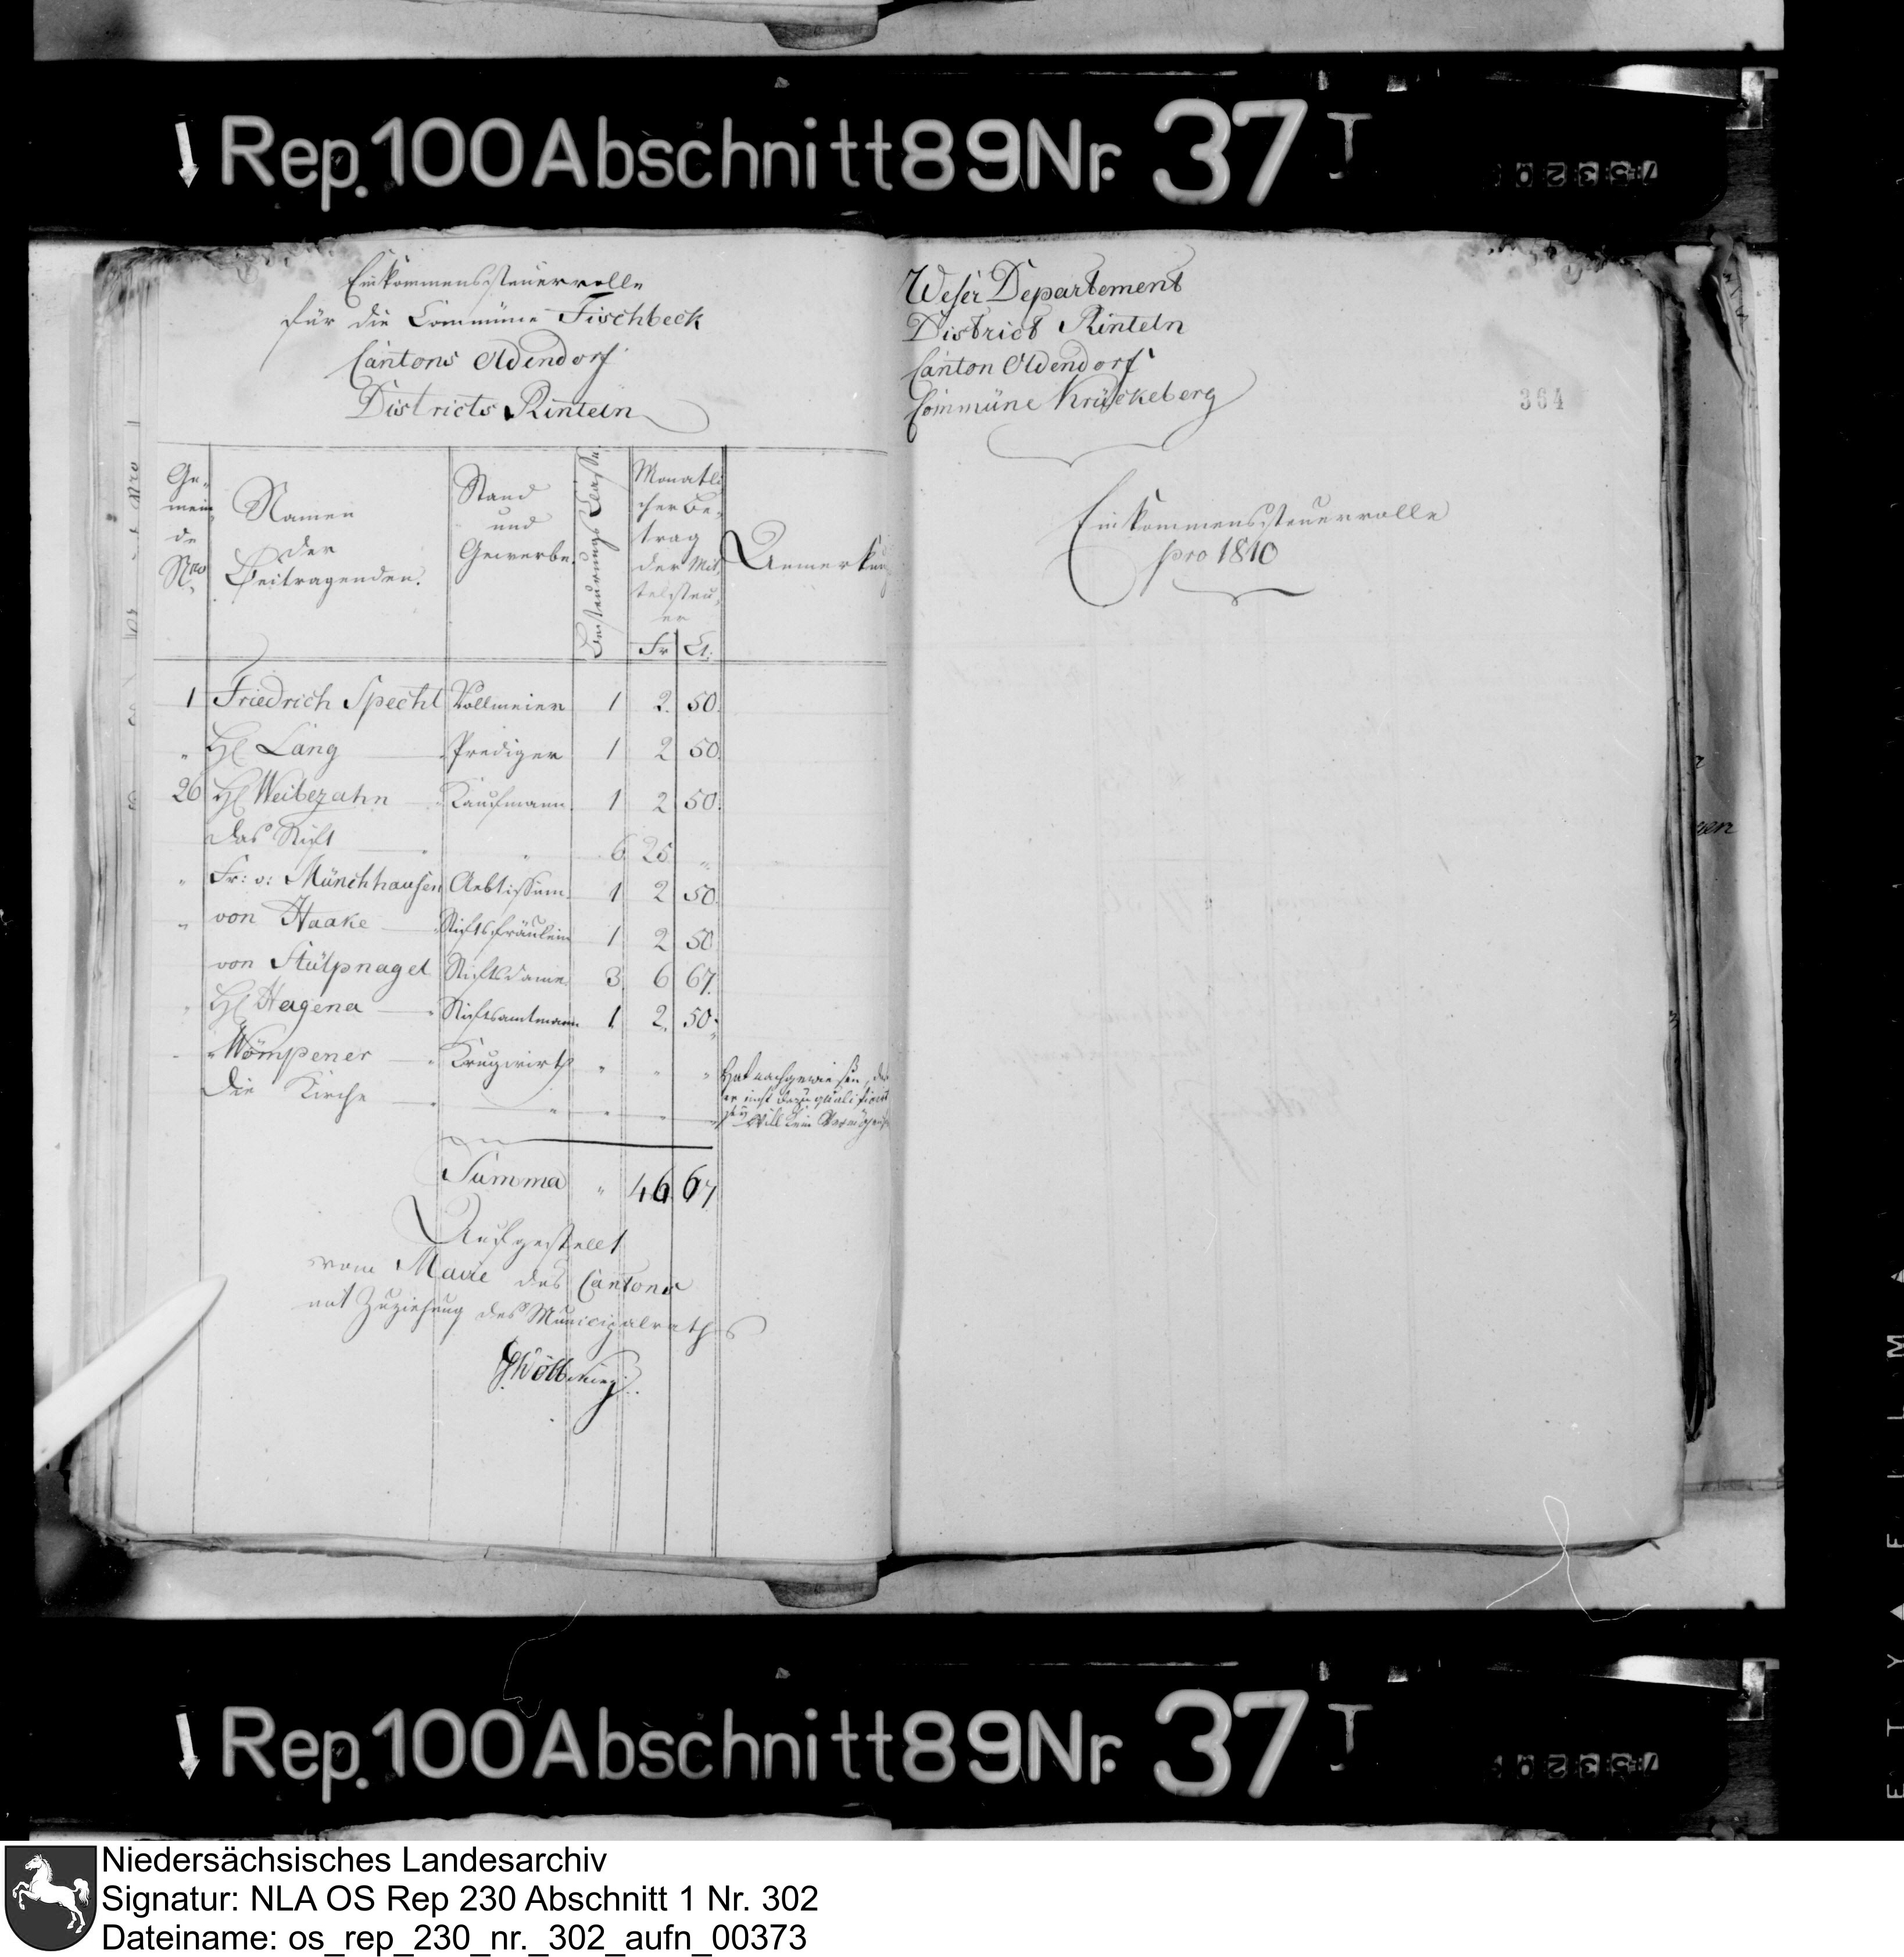 Rep. 100 Abschnitt 89 Nr. 37 I
Einkommenssteuerrolle
für die Commüne Fischbeck
Cantons Oldendorf
Districts Rinteln
Ge-
mein
de
Nro
Namen
der
Beitragenden.
Stand
und
Gewerbe.
Besteurungs Classe
Monatli
cher Be-
trag
der Mit
telsteu-
er
Fr Ct.
Anmerkung
1 Friedrich Specht Vollmeier 1 2. 50.
„ H Lang Prediger 1 2 50.
26 H Weibezahn Kaufmann. 1 2 50.
das Stift „ 6 25 „
„ Fr: v: Münchhausen Aebtissinn 1 2 50.
„ von Haake Stiftsfräulein 1 2 50
von Stülpnagel Stiftsdame 3 6 67.
„ H Hagena Stiftsamtmann 1. 2. 50.
„ Wömpener Krugwirth „ „ „ Hat nachgewiesen, daß
er nicht dazu qualificirt
sey
die Kirche „ „ „ „ Will kein Vermögen
Summa „ 46 67
Aufgestellt
vom Maire des Cantons
mit Zuziehung des Municipalraths
Weser Departement
District Rinteln
Canton Oldendorf
Commüne Krückeberg
364
Einkommenssteuerrolle
pro 1810
Rep. 100 Abschnitt 89 Nr. 37 I
Niedersächsisches Landesarchiv
Signatur: NLA OS Rep 230 Abschnitt 1 Nr. 302
Dateiname: os_rep_230_nr._302_aufn_00373